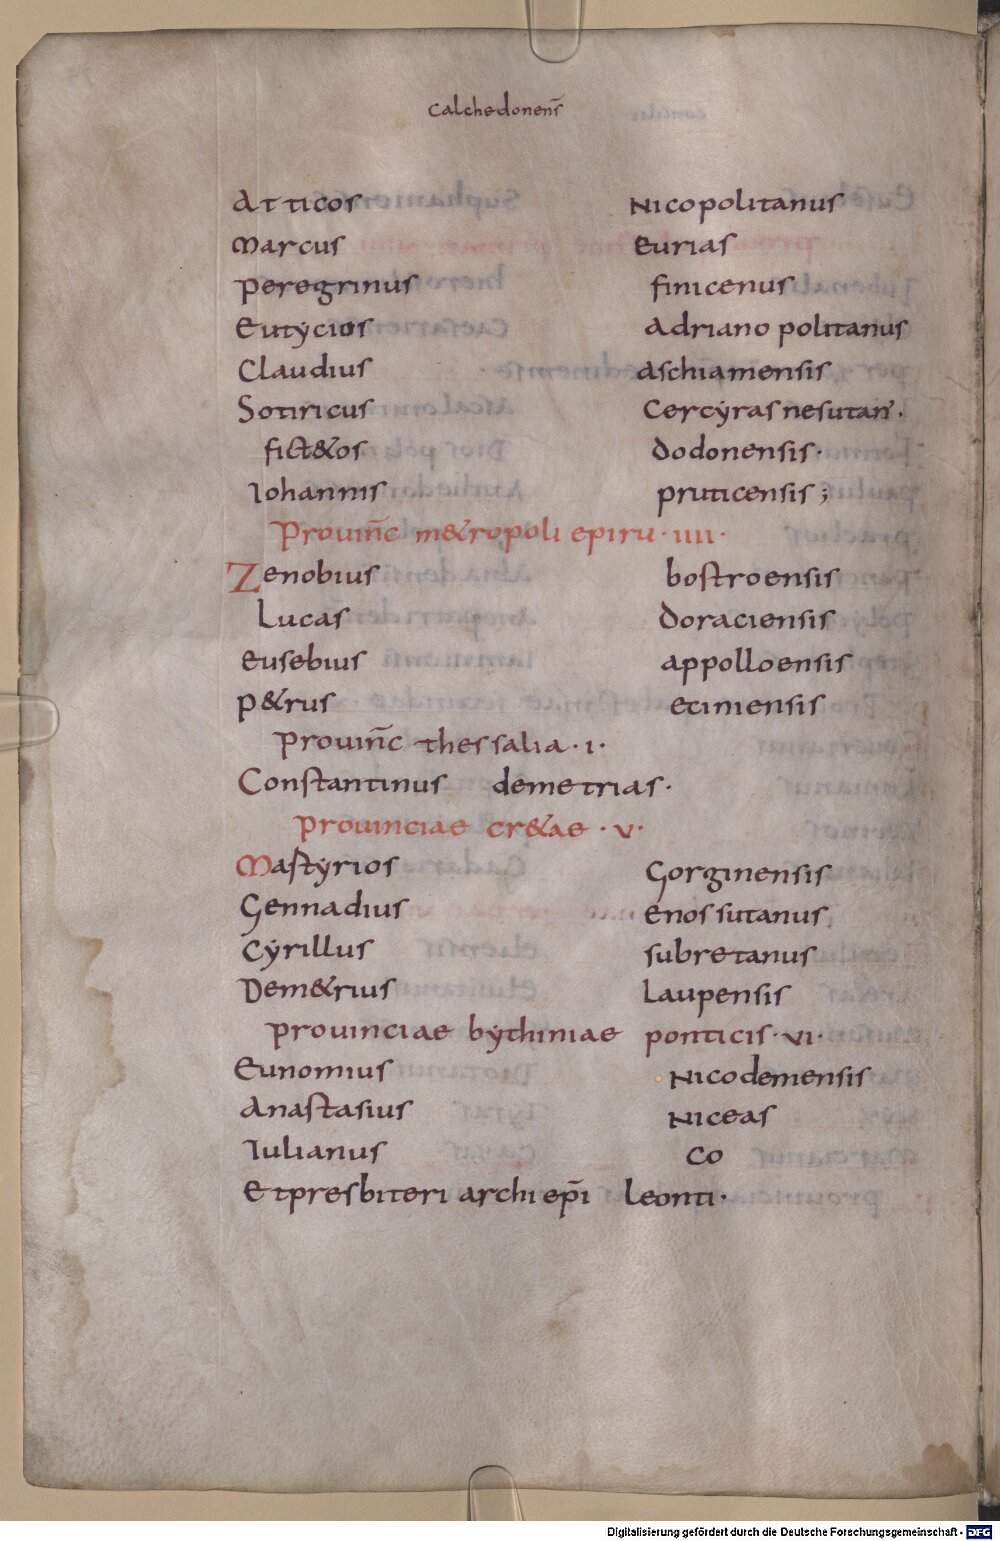 Calchedonens̄
Atticos Nicopolitanus
Marcus Eurias
Peregrinus finicenus
Eutẏcios Adrianopolitanus
Claudius aschiamensis
Sotiricus Cercẏras nesutan̄.
fict&os dodonensis.
Iohannis pruticensis;
Prouin̄c m&ropoli epiru · IIII ·
Zenobius bostroensis
Lucas Doraciensis
Eusebius appolloensis
P&rus eciniensis
Prouin̄c thessalia · I ·
Constantinus demetrias.
Prouinciae cr&ae · V ·
Mastẏrios Gorginensis
Gennadius enossutanus
Cẏrillus subretanus
Dem&rius Laupensis
Prouinciae bẏthiniae ponticis · VI ·
Eunomius Nicodemensis
Anastasius Niceas
Iulianus Co
Et presbiteri archi ep̄i leonti.
Digitalisierung gefördert durch die Deutsche Forschungsgemeinschaft - DFG